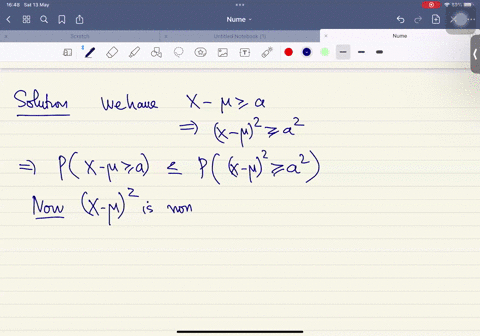 16:48 Sat 13 May
53%
Nume
Scratch
Untitled Notebook (1)
Nume
Solution We have X - μ ≥ a
⇒ (X-μ)² ≥ a²
⇒ P(X-μ ≥ a) ≤ P((X-μ)² ≥ a²)
Now (X-μ)² is non